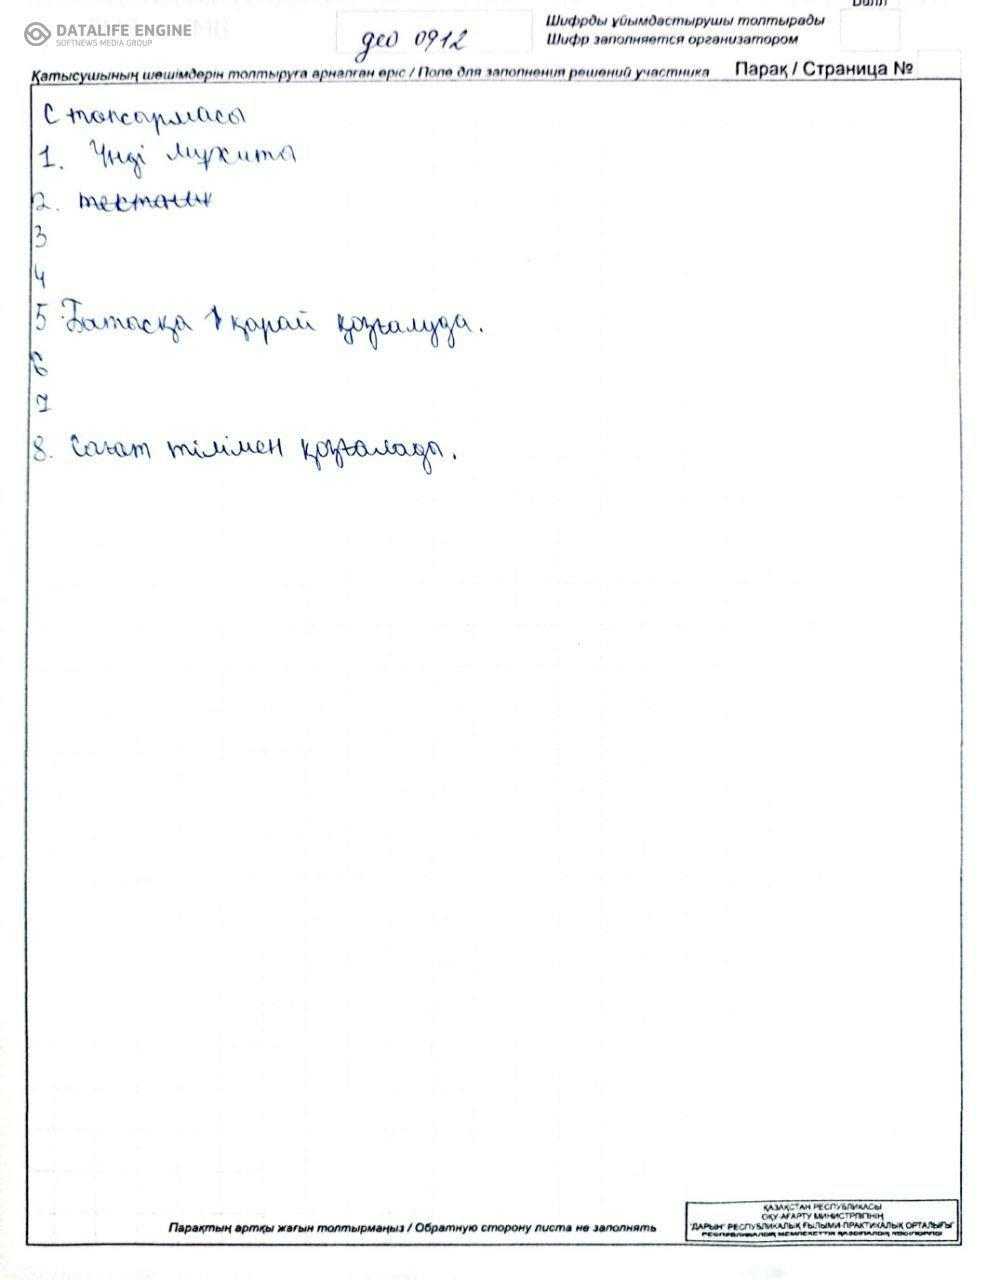 DATALIFE ENGINE
SOFTNEWS MEDIA GROUP
гео 0912
Шифрды ұйымдастырушы толтырады
Шифр заполняется организатором
Балл
Қатысушының шешімдерін толтыруға арналған өріс / Поле для заполнения решений участника
Парақ / Страница №
С тапсырмасы
1. Үнді мұхиты
2. тектоник
3
4
5 Батысқа қарай қозғалуда.
6
7
8. Сағат тілімен қозғалады.
Парақтың артқы жағын толтырмаңыз / Обратную сторону листа не заполнять
ҚАЗАҚСТАН РЕСПУБЛИКАСЫ
ОҚУ-АҒАРТУ МИНИСТРЛІГІНІҢ
"ДАРЫН" РЕСПУБЛИКАЛЫҚ ҒЫЛЫМИ-ПРАКТИКАЛЫҚ ОРТАЛЫҒЫ